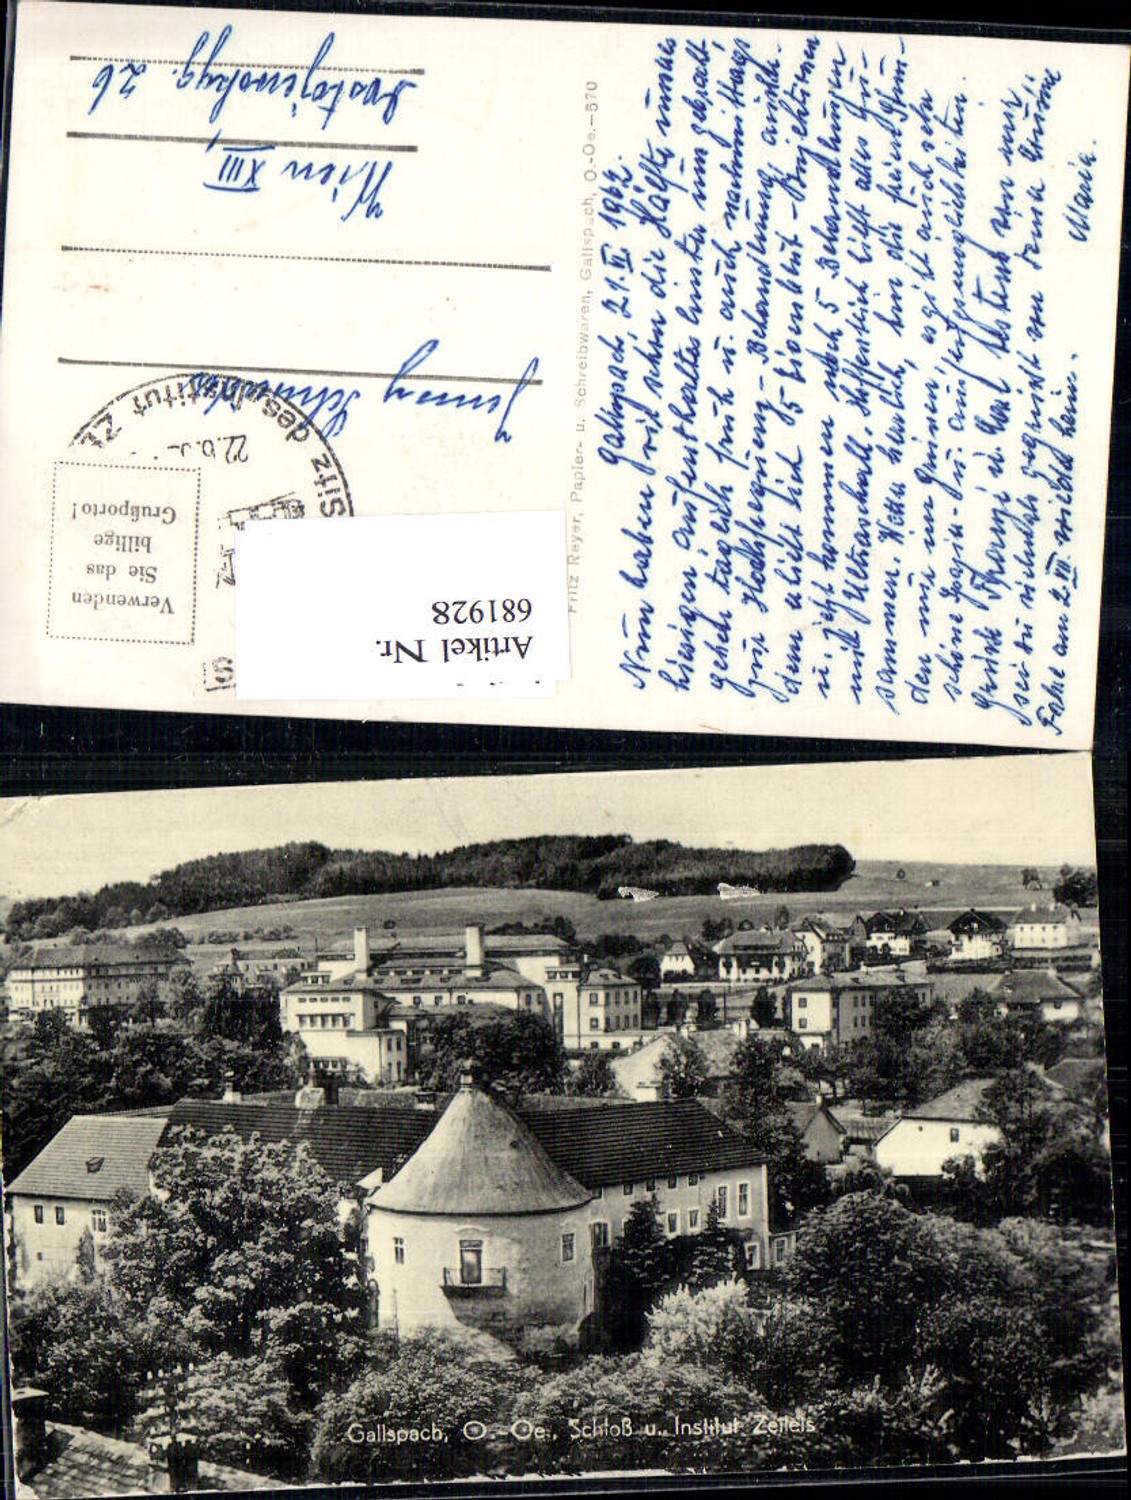 Gallspach, 21.VI 1962.
Nun haben wir schon die Hälfte unseres
hiesigen Aufenthaltes hinter uns gebracht
gehen täglich früh u. auch nachmittags
zur Hochfrequenz-Behandlung, außer-
dem erhielt ich 5 - Injektionen
u. jetzt kommen noch 5 Behandlungen
mit Ultraschall. Hoffentlich hilft alles zu-
sammen. Wetter herrlich, bin die freien Stun-
den nur im Grünen, es gibt auch sehr
schöne Spazier- u. Ausflugsmöglichkeiten.
Grüße u. Karl bestens von mir,
sei du vielmals gegrüßt von Deiner
Fahre am 2.VII. wieder heim. Maria.
Fritz Reyer, Papier- u. Schreibwaren, Gallspach, O.-Oe.—570
Jenny
Wien XIII,
26
Sitz des Institut
22.6.
Verwenden
Sie das
billige
Grußporto!
Artikel Nr.
681928
Gallspach, O.-Oe., Schloß u. Institut Zeileis